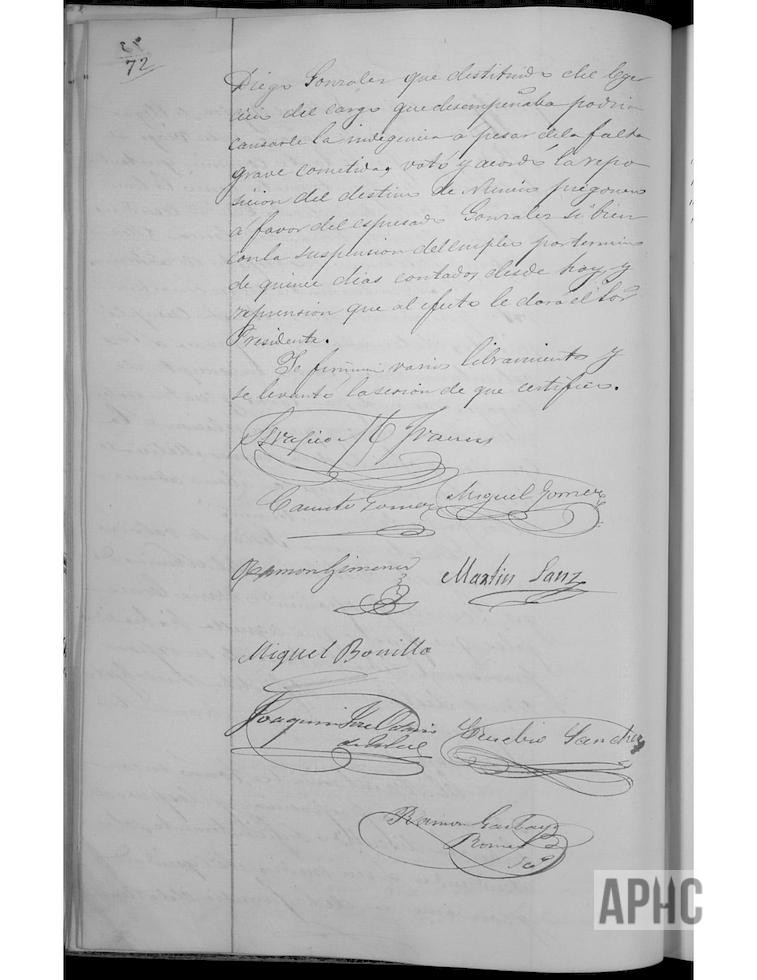 72
Diego Gonzalez que destituido del Eger-
cicio del cargo que desempeñaba podria
causarle la indigencia a pesar dela falta
grave cometida, votó y acordó la repo-
sicion del destino de Nuncio pregonero
a favor del espresado Gonzalez si bien
conla suspension del empleo por termino
de quince dias contados desde hoy, y
reprension que al efecto le dará el Sor
Presidente.
Se firmaron varios libramientos y
se levantó la sesion de que certifico.
Frances
Gomez Miguel Gomez
Ramon Gimenez Martin Sanz
Miguel Bonilla
Joaquin Eusebio Sanchez
Ramon Garbayo
APHC